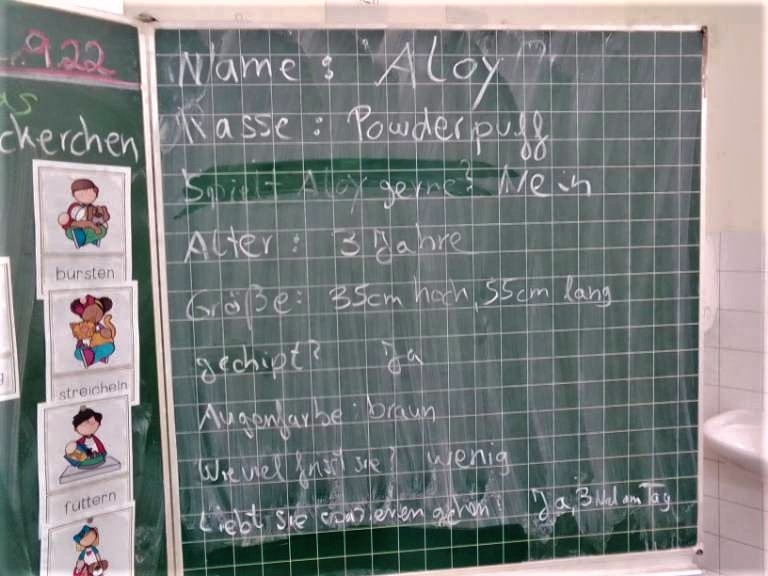 .9.22
as
ckerchen
bürsten
streicheln
füttern
Name: Aloy
Rasse: Powderpuff
Spielt Aloy gerne? Nein
Alter: 3 Jahre
Größe: 35cm hoch, 55cm lang
gechipt? Ja
Augenfarbe: braun
Wieviel frisst sie? wenig
Liebt sie spazieren gehen? Ja, 3 Mal am Tag